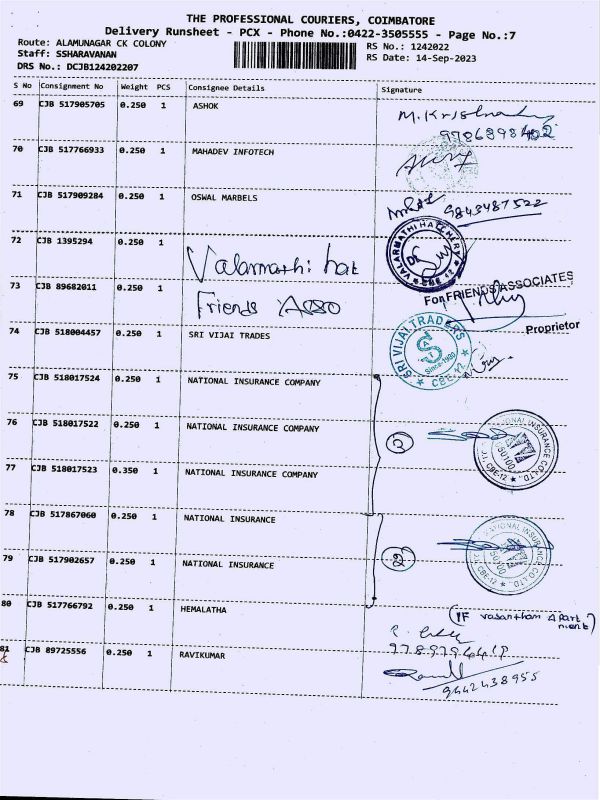 THE PROFESSIONAL COURIERS, COIMBATORE
Delivery Runsheet - PCX - Phone No.:0422-3505555 - Page No.:7
Route: ALAMUNAGAR CK COLONY
RS No.: 1242022
Staff: SSHARAVANAN
RS Date: 14-Sep-2023
DRS No.: DCJB124202207
S No Consignment No Weight PCS Consignee Details Signature
69 CJB 517905705 0.250 1 ASHOK
70 CJB 517766933 0.250 1 MAHADEV INFOTECH
71 CJB 517909284 0.250 1 OSWAL MARBELS
9843487522
72 CJB 1395294 0.250 1 Valarmathi hat
VALARMATHI HATCHERY
CBE-12
73 CJB 89682011 0.250 1 Friends Asso
For FRIENDS ASSOCIATES
Proprietor
74 CJB 518004457 0.250 1 SRI VIJAI TRADES
SRI VIJAI TRADERS
Since-1980
CBE-12
75 CJB 518017524 0.250 1 NATIONAL INSURANCE COMPANY
76 CJB 518017522 0.250 1 NATIONAL INSURANCE COMPANY
3
NATIONAL INSURANCE CO. LTD.
CBE-12
77 CJB 518017523 0.350 1 NATIONAL INSURANCE COMPANY
78 CJB 517867060 0.250 1 NATIONAL INSURANCE
2
NATIONAL INSURANCE CO. LTD.
CBE-12
79 CJB 517902657 0.250 1 NATIONAL INSURANCE
80 CJB 517766792 0.250 1 HEMALATHA
(IF vasantham Apartment)
81 CJB 89725556 0.250 1 RAVIKUMAR
9442438955